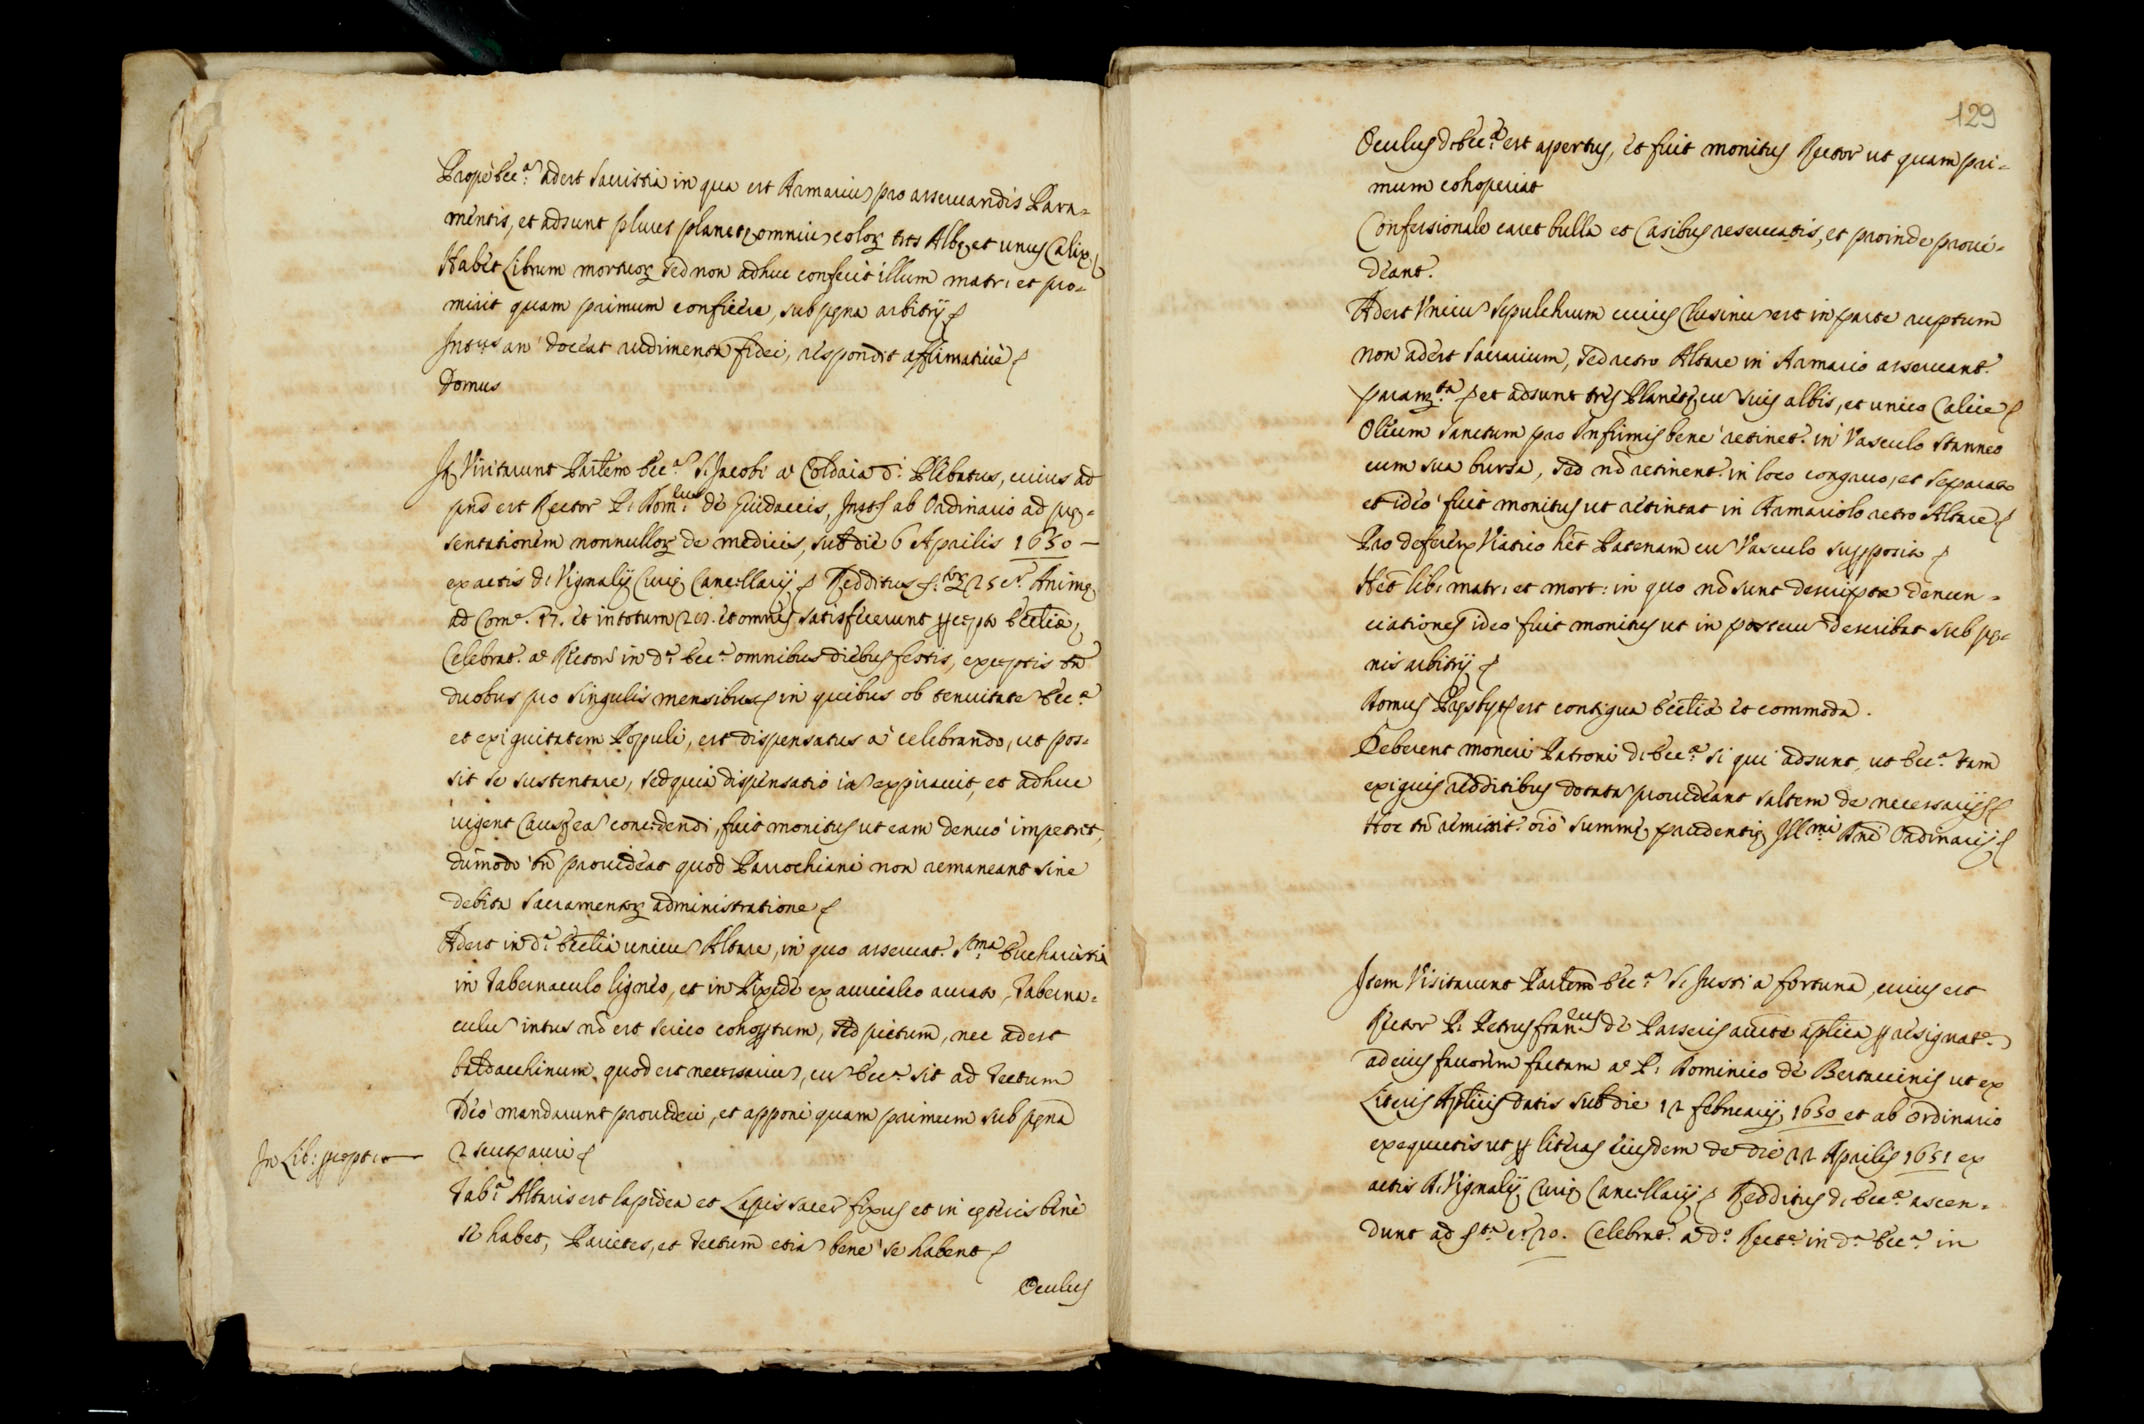 Prope Ecc.ª adest Sacristia in qua est Armariũ pro asservandis Para-
mentis, et adsunt plures planetę omniũ colorꝫ tres Albę et unus Calix
Habet Librum mortuorꝫ sed non adhuc confecit illum matr: et pro-
misit quam primum conficere, sub pęna arbitrij
Int.us an doceat rudimenta fidei, respondit affirmative
Domus
Itẽ Visitarunt Parlem Ecc.ª S. Jacobi a Coldaia d.i Plebatus, cuius ad
pñs est Rector P. Dom.cus de Guidaccis, Inst.s ab Ordinario ad prę-
sentationem nonnullorꝫ de medicis, sub die 6 Aprilis 1630 —
ex actis d. Vignalij Curię Cancellarij Redditus 25 Animę
ad Com.e 17. et in totum et omnes satisfecerunt pręcepto Ecclię
Celebrat.r a Rectore in d.ª Ecc.ª omnibus diebus festis, exceptis tñ
duobus pro singulis mensibus in quibus ob tenuitate Ecc.ª
et exiguitatem Populi, est dispensatus a celebrando, ut pos-
sit se sustentare, sed quia dispensatio iã expiravit, et adhuc
vigent Causę eã concedendi, fuit monitus ut eam denuo impetret,
dũmodo tñ provideat quod Parrochiani non remaneant sine
debita sacramentorꝫ administratione
Adest in d.ª Ecclia unicũ Altare, in quo asservat.r S.ma Eucharistia
in Tabernaculo ligneo, et in Pixide ex auricalco aurato, Taberna-
culũ intus nõ est serico cohoptum, sed pictum, nec adest
baldacchinum, quod est necessariũ, cũ Ecc.ª sit ad tectum
Ideo mandarunt provideri, et apponi quam primum sub pęna
2 scutorꝫ auri
In Lib: pręcepto
Tab.ª Altaris est lapidea et Lapis sacer fixus et in cęteris bene
se habet, Parietes, et tectum etiã bene se habent
Oculus
129
Oculus d. Ecc.ę est apertus, et fuit monitus Rector ut quam pri-
mum cohoperiat
Confessionale caret bulla et Casibus reservatis, et proinde provi-
deant.
Adest Unicũ sepulchrum cuius Clusinũ est in parte ruptum
non adest sacrarium, sed retro Altare in Armario asservant.r
param.ta et adsunt tres Planetę cũ suis albis, et unico Calice
Olium sanctum pro Infirmis bene retinet.r in Vasculo stanneo
cum sua bursa, sed nõ retinent.r in loco congruo, et separato
et ideo fuit monitus ut retineat in Armariolo retro Altare
Pro deferendo Viatico het Patenam cũ Vasculo supposito
Het lib: matr: et mort: in quo nõ sunt descriptæ denun-
ciationes ideo fuit monitus ut in posterũ describat sub pę-
nis arbitrij
Domus Pręsbyt.i est contigua Ecclie et commoda.
Deberent moneri Patroni d. Ecc.ę si qui adsunt, ut Ecc.ę tam
exiguis redditibus dotatæ provideant saltem de necessarijs
Hoc tñ remittit.r oĩo summę prudentię Ill.mi Dñi Ordinarij
Item Visitarunt Parlem Ecc.ª S. Justi a fortuna, cuius est
Rector P. Petrus fran.cus de Parseris auct.e aplica p resignat.e
ad eius favorem factam a P. Dominico de Bertaccinis ut ex
Literis Aplicis datis sub die 12 februarij 1630 et ab Ordinario
exequutis ut p literas eiusdem de die 22 Aprilis 1631 ex
actis D. Vignalij Curię Cancellarij Redditus d. Ecc.ę ascen-
dunt ad 20. Celebrat.r a d.o Rect.e in d.ª Ecc.ª in